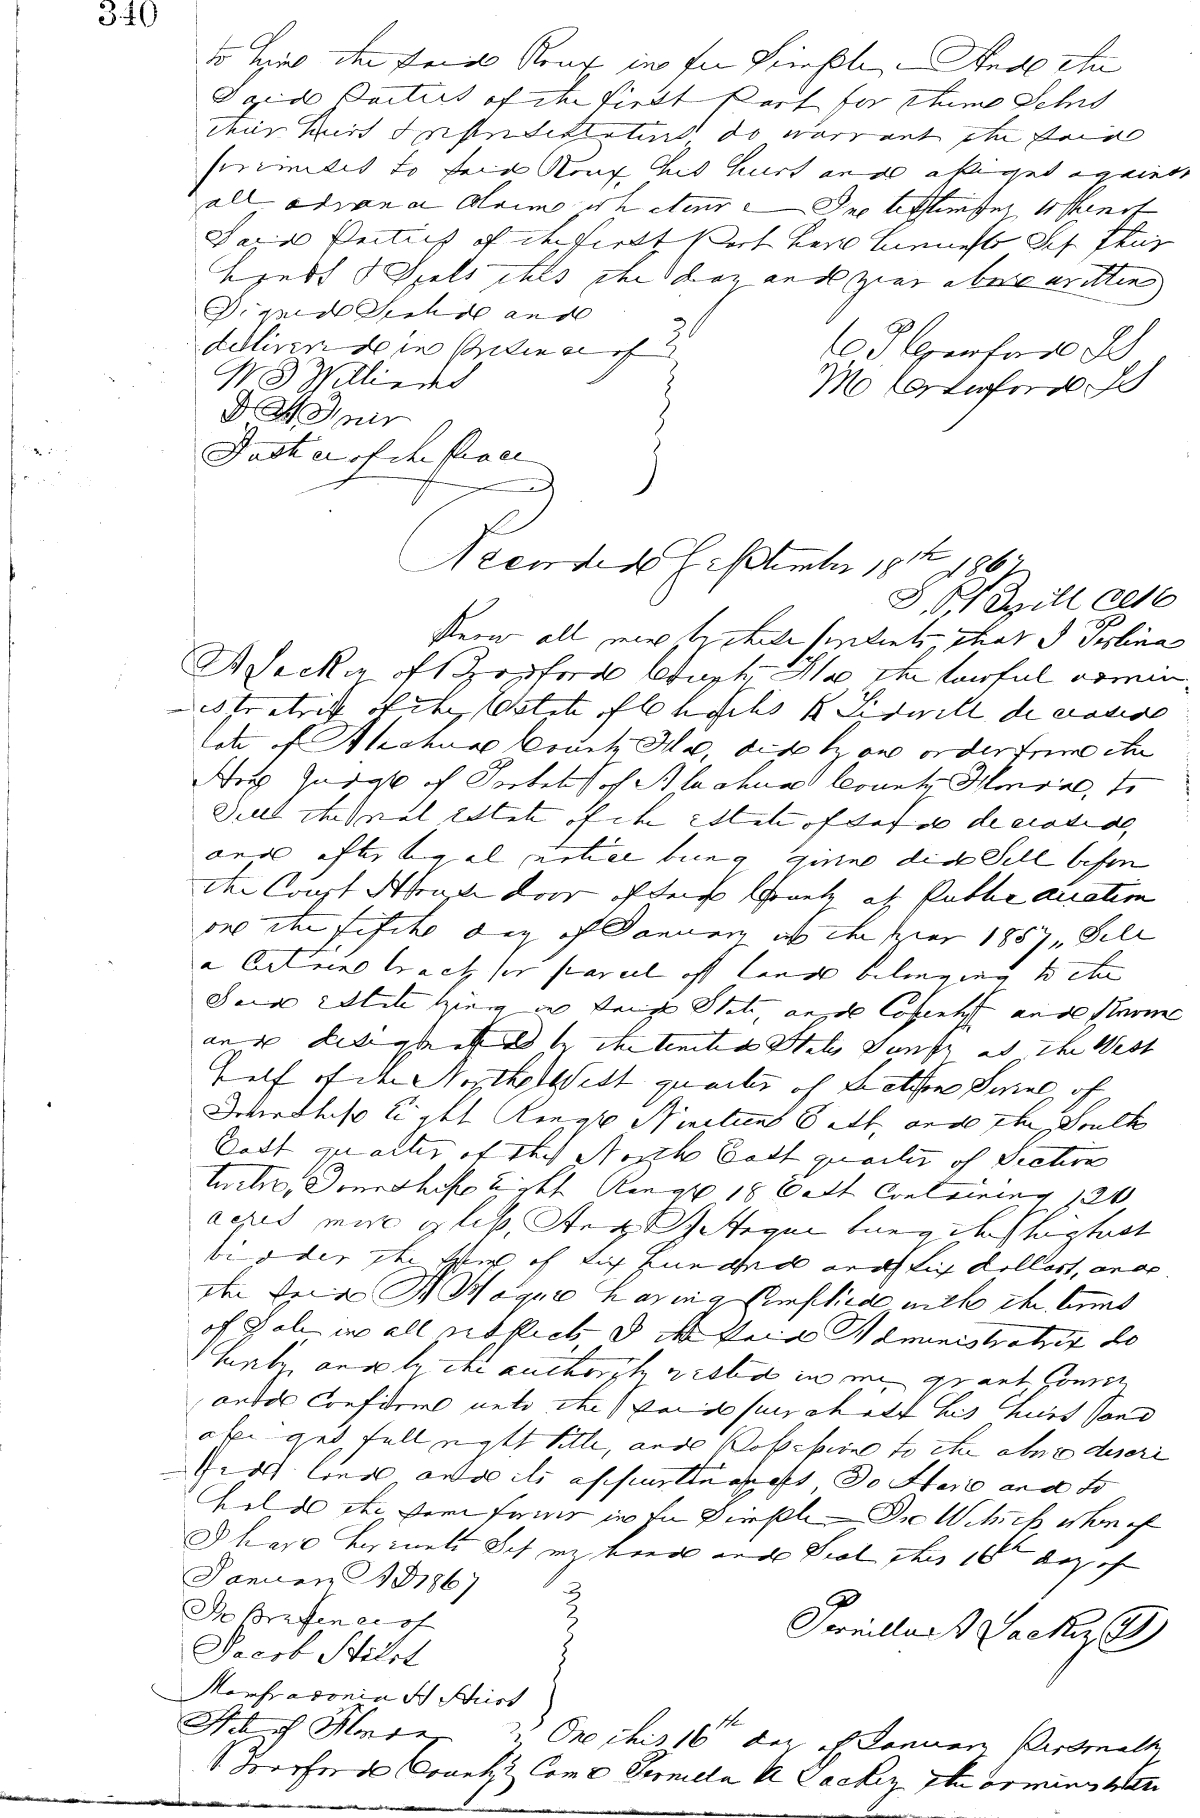 340
to him the said Roux in fee Simple, - And the
Said Parties of the first Part for them Selvs
their heirs & representatives do warrant the said
premises to said Roux his heirs and assigns against
all adverse claims whatever - In testimony whereof
Said Parties of the first Part have hereunto Set their
hands & Seals this the day and year above written
Signed Sealed and
delivered in Presence of
W S Williams
Justice of the Peace
C P Crawford LS
M Crawford LS
Recorded September 18th 1867
Clk
Know all men by these presents, that I
A Lackey of Bradford County Fla the lawful admin
istratrix of the Estate of R Sidwell deceased
late of Alachua County Fla, did by an order from the
Hon Judge of Probate of Alachua County Florida, to
Sell the real estate of the estate of said deceased,
and after legal notice being given did Sell before
the Court House door of said County at Public auction
on the fifth day of January in the year 1857, Sell
a Certain tract or parcel of land belonging to the
Said estate lying in said State, and County and Known
and designated by the United States Survey as the West
half of the North West quarter of Section Seven of
Township Eight Range Nineteen East, and the South
East quarter of the North East quarter of Section
twelve, Township Eight Range 18 East Containing 120
acres more or less, And Hague being the highest
bidder the sum of Six hundred and six dollars, and
the said Hague having Complied with the terms
of Sale in all respects, I the said Administratrix do
hereby and by the authority vested in me grant Convey
and Confirm unto the said purchaser his heirs and
assigns full right title, and Possession to the above descri
bed land and its appurtenances, To Have and to
hold the same forever in fee Simple - In Witness whereof
I have hereunto Set my hand and Seal this 16th day of
January AD 1867
In Presence of
Jacob
Pernilla A Lackey LS
State of Florida } On this 16th day of January Personally
Bradford County } Came Pernilla A Lackey the administra